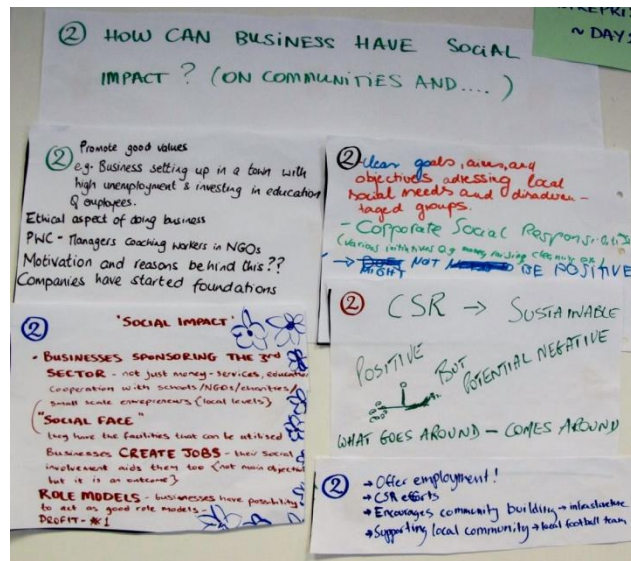 ② HOW CAN BUSINESS HAVE SOCIAL
IMPACT? (ON COMMUNITIES AND....)
~ DAYS
② Promote good values
e.g. Business setting up in a town with
high unemployment & investing in education
& employees.
Ethical aspect of doing business
PWC - Managers coaching workers in NGOs
Motivation and reasons behind this??
Companies have started foundations
② - clear goals, aims, and
objectives adressing local
social needs and disadvan-
taged groups.
- Corporate Social
(various initiatives e.g. money raising
→ MIGHT NOT BE POSITIVE
② 'SOCIAL IMPACT'
• BUSINESSES SPONSORING THE 3rd
SECTOR - not just money - services,
cooperation with schools/NGOs/charities/
small scale entrepreneurs (local levels)
"SOCIAL FACE"
they have the facilities that can be utilised
Businesses CREATE JOBS - their social
involvement aids them too (not main
but it is an outcome)
ROLE MODELS - businesses have possibility
to act as good role models -
PROFIT - #1
② CSR → SUSTAINABLE
POSITIVE BUT POTENTIAL NEGATIVE
WHAT GOES AROUND - COMES AROUND
② → Offer employment!
→ CSR efforts
→ Encourages community building → infrastructure
→ Supporting local community → local football team